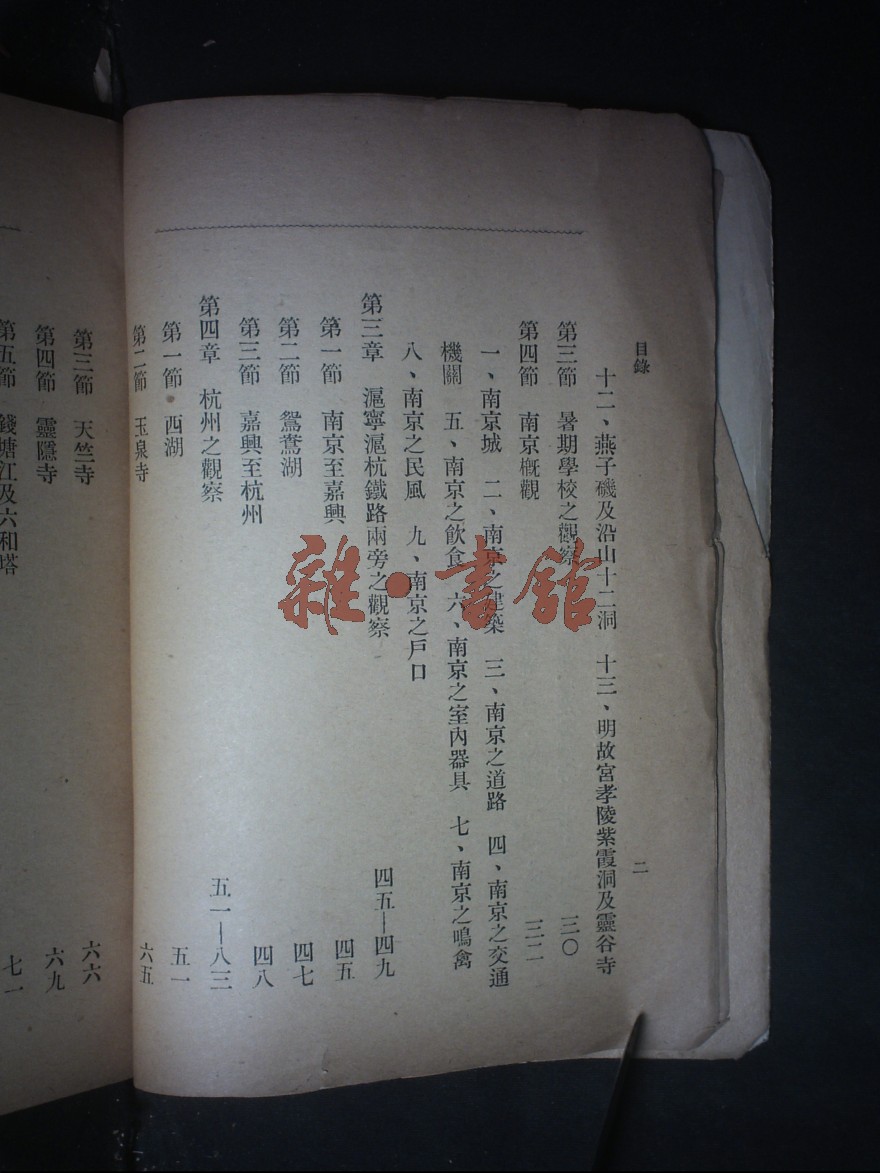 目錄
二
十二、燕子磯及沿山十二洞　十三、明故宮孝陵紫霞洞及靈谷寺
第三節　暑期學校之觀察　三〇
第四節　南京槪觀　三二
一、南京城　二、南京之建築　三、南京之道路　四、南京之交通
機關　五、南京之飮食　六、南京之室內器具　七、南京之鳴禽
八、南京之民風　九、南京之戶口
第三章　滬寧滬杭鐵路兩旁之觀察　四五—四九
第一節　南京至嘉興　四五
第二節　鴛鴦湖　四七
第三節　嘉興至杭州　四八
第四章　杭州之觀察　五一—八三
第一節　西湖　五一
第二節　玉泉寺　六五
第三節　天竺寺　六六
第四節　靈隱寺　六九
第五節　錢塘江及六和塔　七一
雜·書館